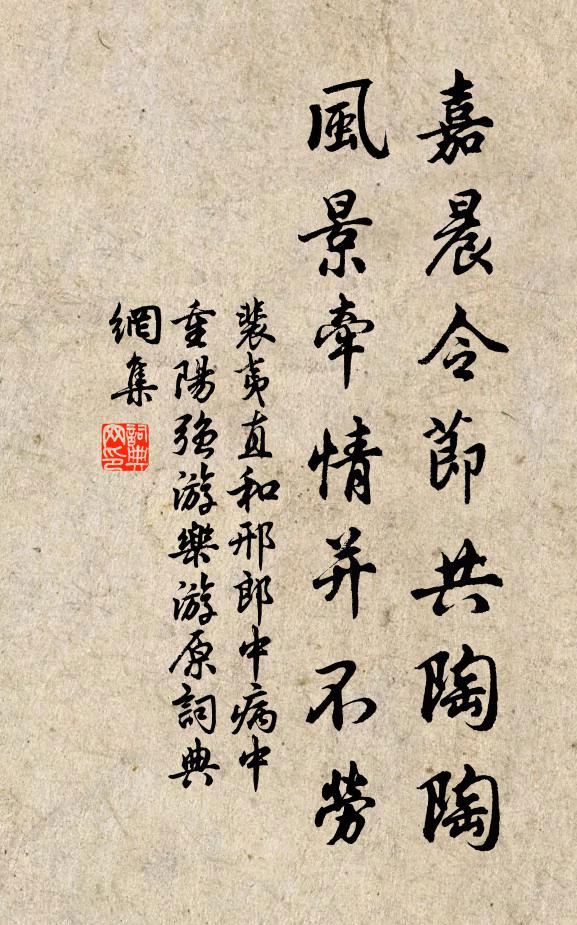 嘉晨令節共陶陶
風景牽情并不勞
裴夷直和邢郎中病中
重陽強游樂游原詞典
網集
詞典網印